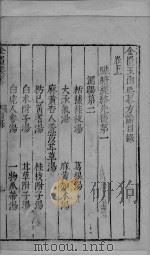 金匱玉函要略方論目録
卷上
臟腑經絡先後第一
痙濕暍第二
栝樓桂枝湯 葛根湯
大承氣湯 麻黃加朮湯
麻黃杏人薏苡甘草湯
防已黃耆湯 桂枝附子湯
白朮附子湯 甘草附子湯
白虎人參湯 一物瓜蒂湯